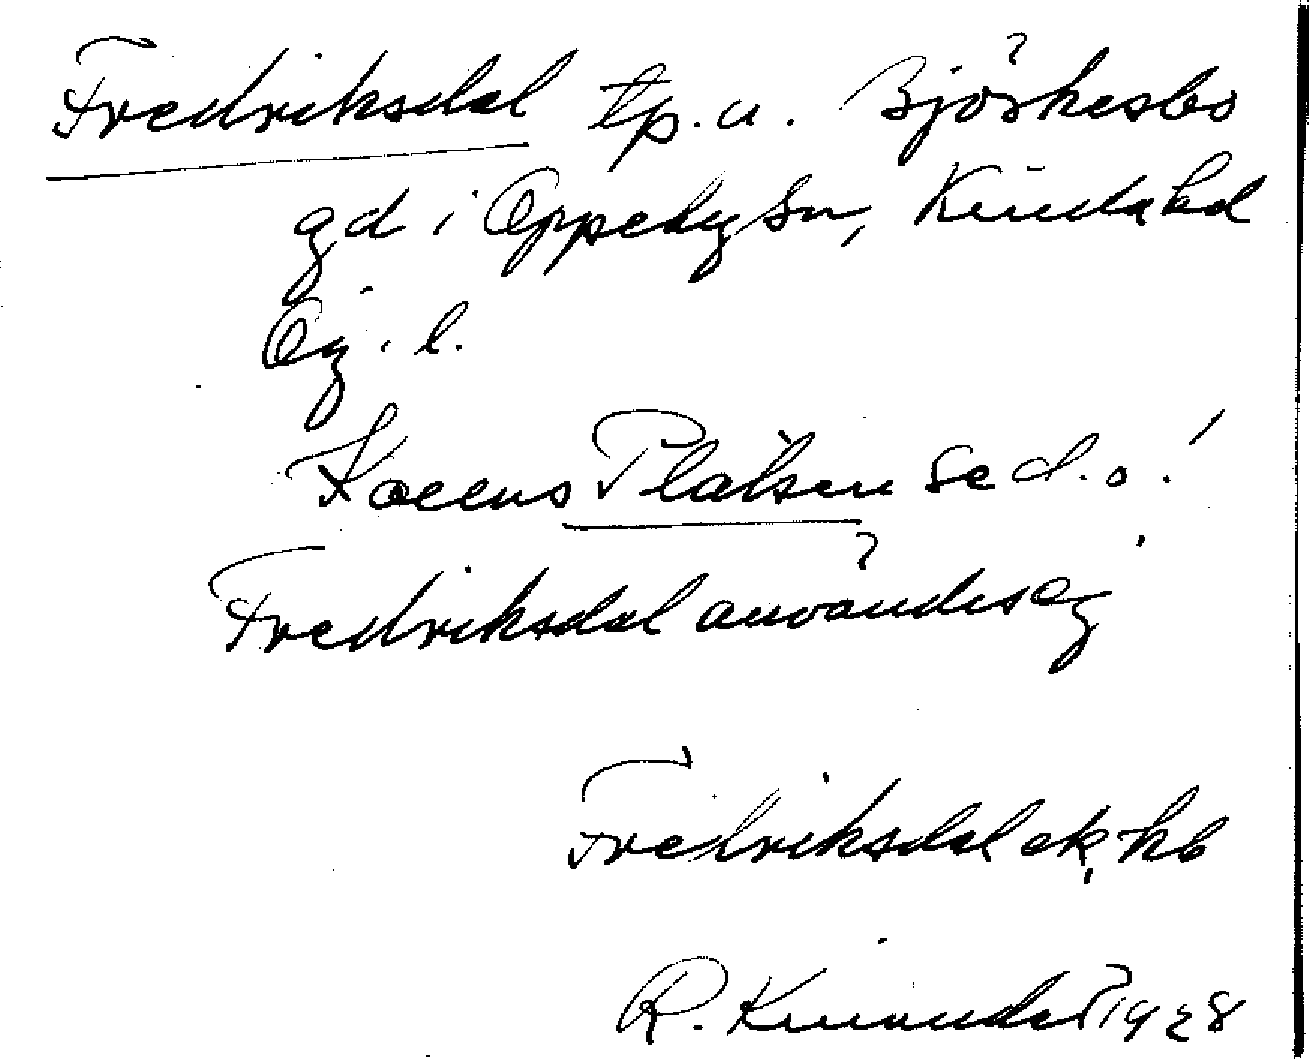 Fredriksdal tp. u. Björkesbo
gd i Oppeby sn, Kinda hd
Ög. l.
Kallas Platsen se d. o.!
Fredriksdal användes ej
Fredriksdal ek, kb
R. Kinander 1928